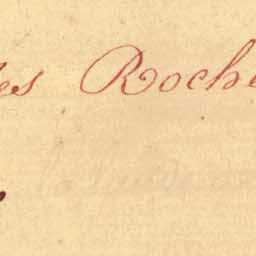 es Roche